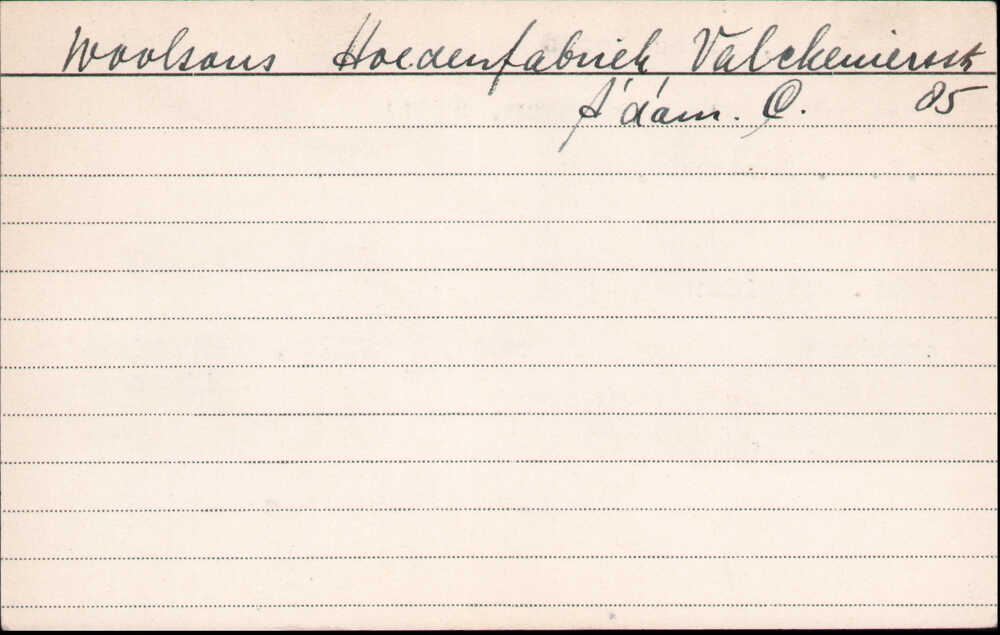 Woolsons Hoedenfabriek Valckenierstr
A'dam. C. 85